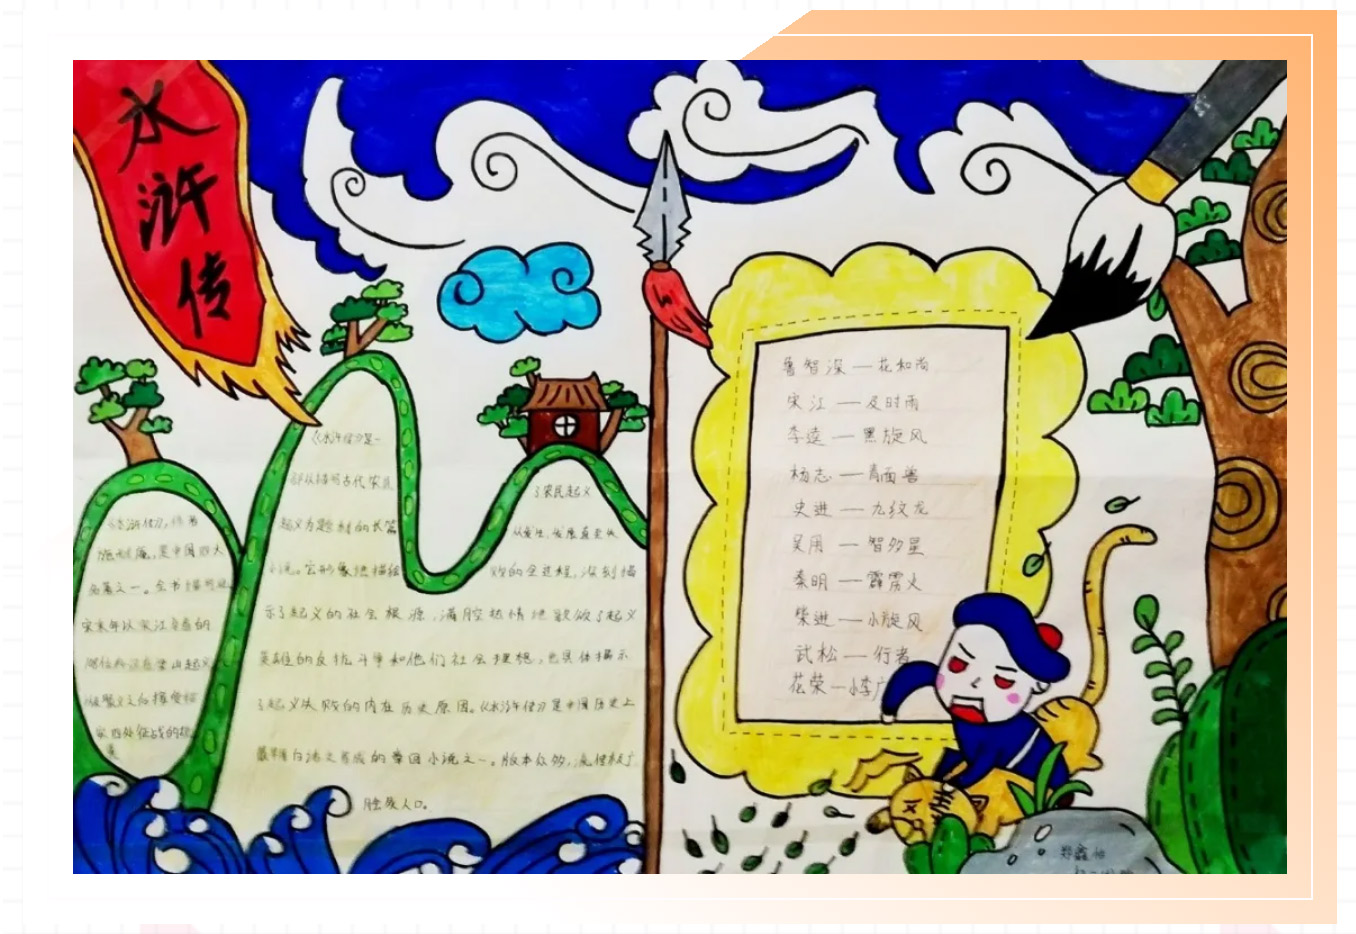 水浒传
《水浒传》，作者
施耐庵，是中国四大
名著之一。全书描写
宋末年以宋江为首的
《水浒传》是一
部以描写古代农民
起义为题材的长篇
小说。它形象地描绘
了农民起义
从发生、发展直至失
败的全过程，深刻揭
示了起义的社会根源，满腔热情地歌颂了起义
英雄的反抗斗争和他们社会理想，也具体揭示
了起义失败的内在历史原因。《水浒传》是中国历史上
最早用白话文写成的章回小说之一。版本众多，流传极广
脍炙人口。
鲁智深—花和尚
宋江—及时雨
李逵—黑旋风
杨志—青面兽
史进—九纹龙
吴用—智多星
秦明—霹雳火
柴进—小旋风
武松—行者
花荣—小李广